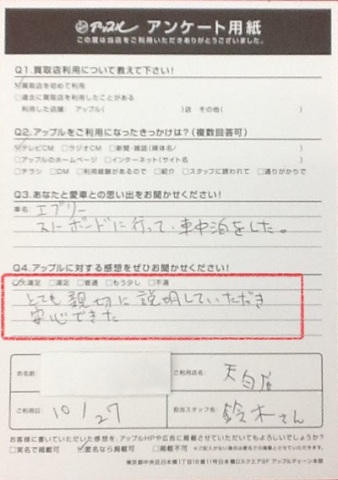 アップル アンケート用紙
この度は当店をご利用いただきありがとうございました。
Q1.買取店利用について教えて下さい!
☑買取店を初めて利用
□過去に買取店を利用したことがある
利用した店舗: アップル( )店 その他( )
Q2.アップルをご利用になったきっかけは?(複数回答可)
☑テレビCM □ラジオCM □新聞・雑誌(媒体名/ )
□アップルのホームページ □インターネット(サイト名 )
□チラシ □DM □利用経験があるので □紹介 □スタッフに誘われて □通りがかりで
Q3.あなたと愛車との思い出をお聞かせください!
車名 エブリー
スノーボードに行って、車中泊をした。
Q4.アップルに対する感想をぜひお聞かせください!
☑大満足 □満足 □普通 □もう少し □不満
とても親切に説明していただき
安心できた
お名前
ご利用店名: 天白店
ご利用日 10/27
担当スタッフ名: 鈴木さん
お客様に書いていただいた感想を、アップルHPや広告に掲載させていただいてもよろしいでしょうか?
□実名で掲載可 ☑匿名なら掲載可 □掲載不可